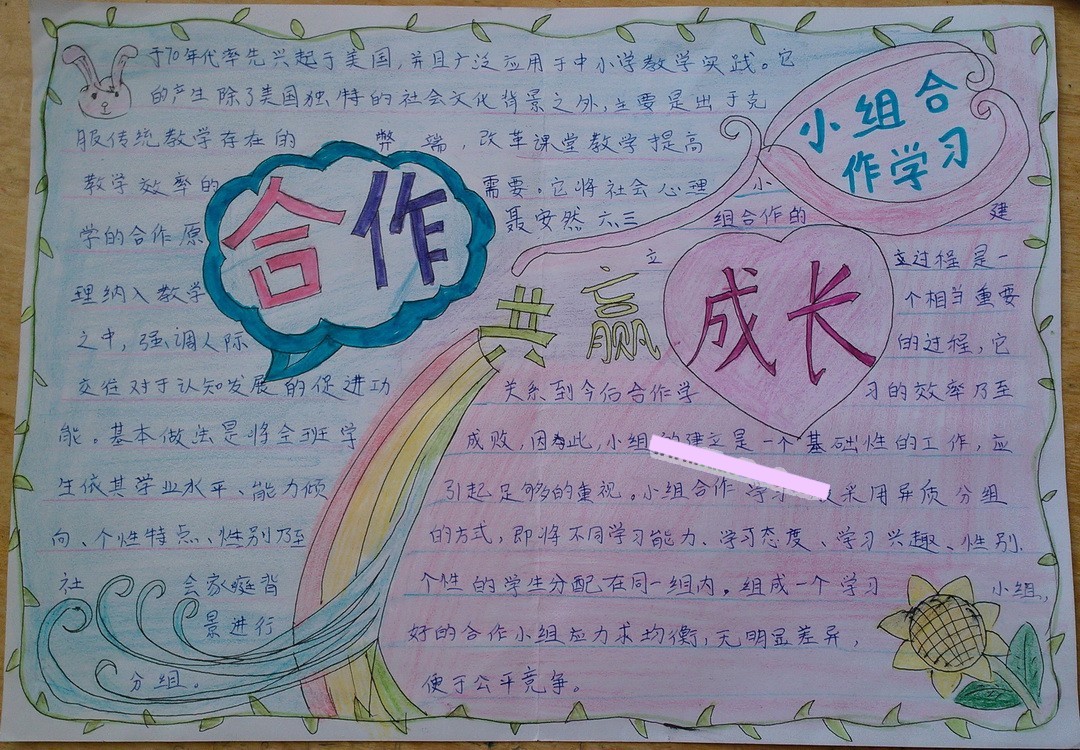 小组合
作学习
合作
共赢
成长
聂安然 六三
于70年代率先兴起于美国,并且广泛应用于中小学教学实践。它
的产生除了美国独特的社会文化背景之外,主要是出于克
服传统教学存在的弊端,改革课堂教学提高
教学效率的需要。它将社会心理
学的合作原
理纳入教学
之中,强调人际
交往对于认知发展的促进功
能。基本做法是将全班学
生依其学业水平、能力倾
向、个性特点、性别乃至
社会家庭背
景进行
分组。
小
组合作的建
立
立过程是一
个相当重要
的过程,它
关系到今后合作学习的效率乃至
成败,因为此,小组的建立是一个基础性的工作,应
引起足够的重视。小组合作学习采用异质分组
的方式,即将不同学习能力、学习态度、学习兴趣、性别.
个性的学生分配在同一组内。组成一个学习小组,
好的合作小组应力求均衡,无明显差异,
便于公平竞争。